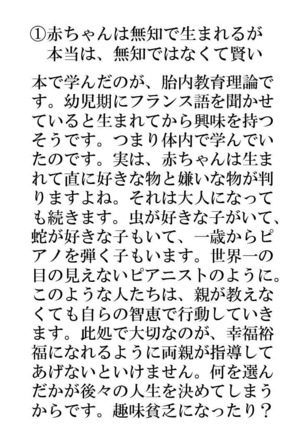 ①赤ちゃんは無知で生まれるが
本当は、無知ではなくて賢い
本で学んだのが、胎内教育理論で
す。幼児期にフランス語を聞かせ
ていると生まれてから興味を持つ
そうです。つまり体内で学んでい
たのです。実は、赤ちゃんは生ま
れて直に好きな物と嫌いな物が判
りますよね。それは大人になって
も続きます。虫が好きな子がいて、
蛇が好きな子もいて、一歳からピ
アノを弾く子もいます。世界一の
目の見えないピアニストのように。
このような人たちは、親が教えな
くても自らの智恵で行動していき
ます。此処で大切なのが、幸福裕
福になれるように両親が指導して
あげないといけません。何を選ん
だかが後々の人生を決めてしまう
からです。趣味貧乏になったり？